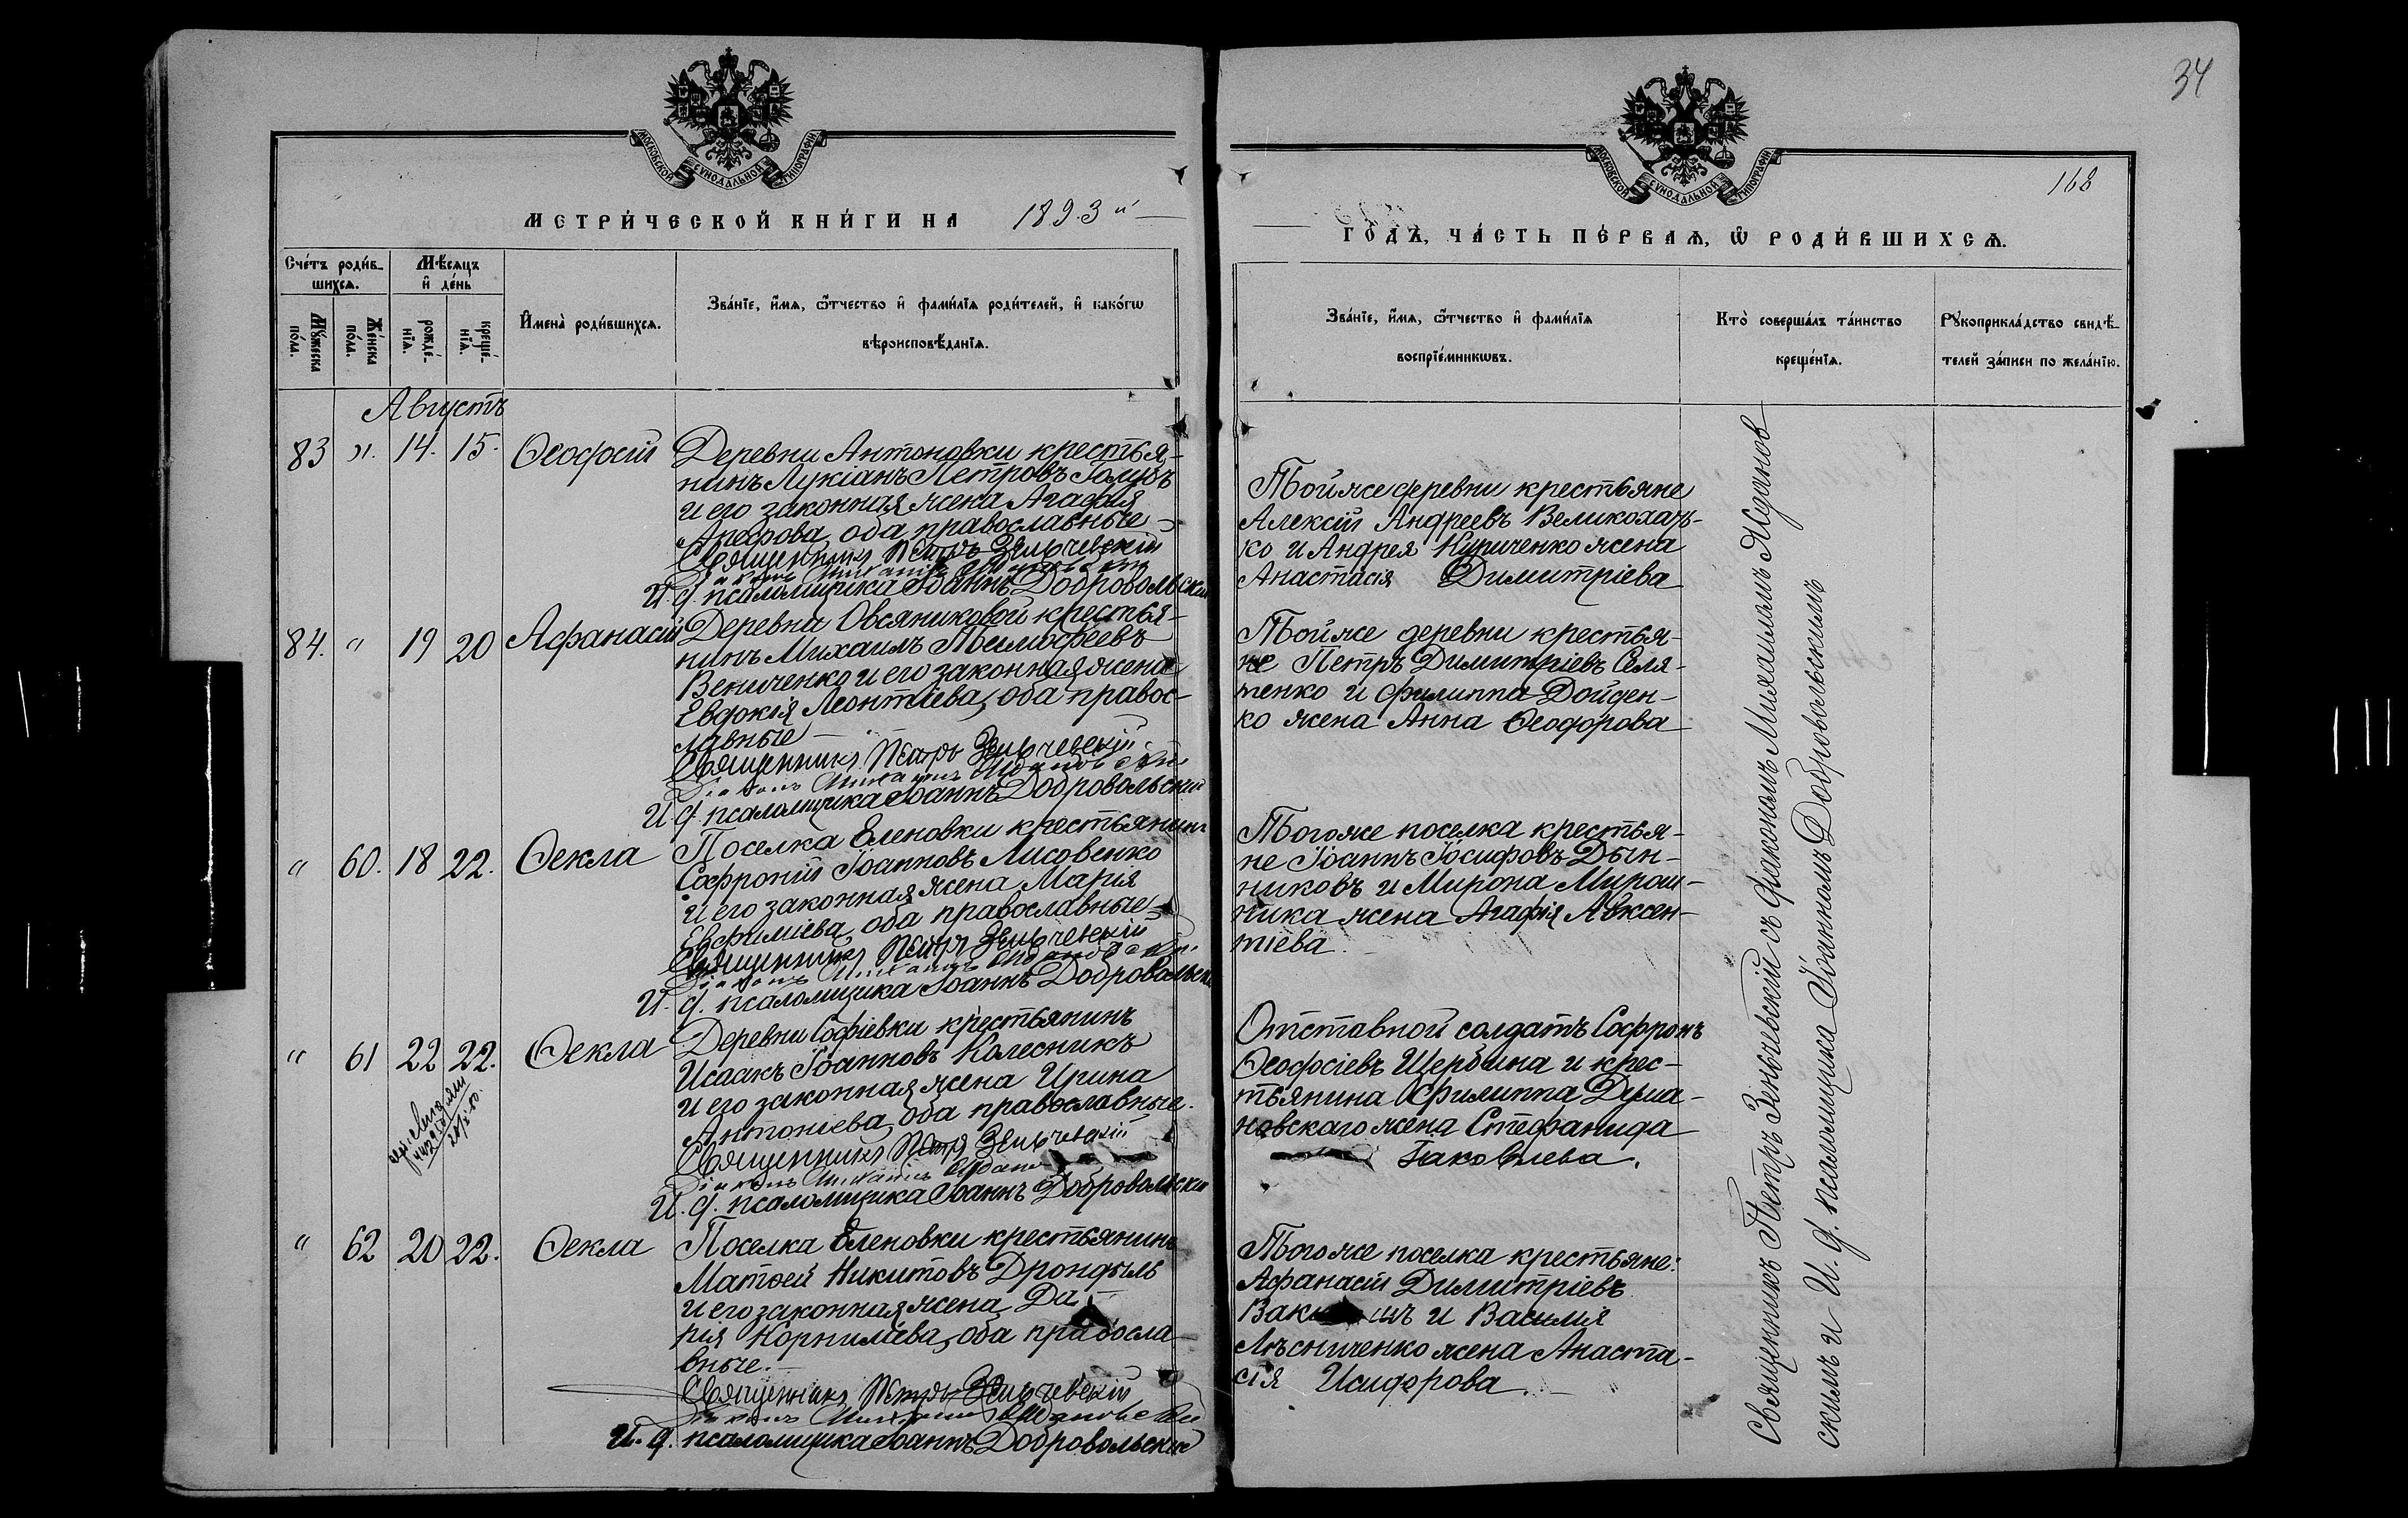 34
168
МОСКОВСКОЙ СУНОДАЛЬНОЙ ТИПОГРАФІИ
МОСКОВСКОЙ СУНОДАЛЬНОЙ ТИПОГРАФІИ
МЕТРИ́ЧЕСКОЙ КНИ́ГИ НА 1893й
ГО́ДЪ, ЧА́СТЬ ПЕ́РВАѦ, Ѡ҆ РОДИ́ВШИХСѦ.
Сче́тъ роди́в-
шихсѧ.
Мѣ́сѧцъ
и҆ де́нь
Мꙋ́жеска
по́ла.
Же́нска
по́ла.
рожде́-
нїѧ.
креще́-
нїѧ.
И҆мена̀ роди́вшихсѧ.
Зва́нїе, и҆́мѧ, ѻ҆́тчество и҆ фами́лїѧ роди́телей, и҆ како́гѡ
вѣроисповѣ́данїѧ.
Зва́нїе, и҆́мѧ, ѻ҆́тчество и҆ фами́лїѧ
воспрїе́мникѡвъ.
Кто̀ соверша́лъ та́инство
креще́нїѧ.
Рꙋкоприкла́дство свидѣ́-
телей за́писи по жела́нїю.
Августъ
83 „ 14. 15. Ѳеодосій
Деревни Антоновки крестья-
нинъ Лукіанъ Петровъ Голубъ
и его законная жена Агафія
Арефова, оба православные
Священникъ Петръ Зеньчевскій
Діаконъ Михаилъ
И. д. псаломщика Іоаннъ Добровольскій
Тойже деревни крестьяне
Алексій Андреевъ Великохать-
ко и Андрея Кириченко жена
Анастасія Димитріева
84. „ 19 20 Афанасій
Деревни Овсяниковой крестья-
нинъ Михаилъ Тимофеевъ
Вениченко и его законная жена
Евдокія Леонтіева, оба правос-
лавные
Священникъ Петръ Зеньчевскій
Діаконъ Михаилъ
И. д. псаломщика Іоаннъ Добровольскій
Тойже деревни крестья-
не Петръ Димитріевъ Селя-
тенко и Филиппа Дойден-
ко жена Анна Ѳеодорова
„ 60. 18 22. Ѳекла
Поселка Еленовки крестьянинъ
Софроній Іоанновъ Лисовенко
и его законная жена Марія
Евфиміева, оба православные
Священникъ Петръ Зеньчевскій
Діаконъ Михаилъ
И. д. псаломщика Іоаннъ Добровольскій
Тогоже поселка крестья-
не Іоаннъ Іосифовъ Дын-
никовъ и Мирона Мирош-
ника жена Агафія Авксен-
тіева.
„ 61 22 22. Ѳекла
Деревни Софіевки крестьянинъ
Исаакъ Іоанновъ Колесникъ
и его законная жена Ирина
Антоніева, оба православные.
Священникъ Петръ Зеньчевскій
Діаконъ Михаилъ
И. д. псаломщика Іоаннъ Добровольскій
Отставной солдатъ Софронъ
Ѳеодосіевъ Щербина и крес-
тьянина Филиппа Дума-
новскаго жена Стефанида
Іаковлева.
„ 62 20 22. Ѳекла
Поселка Еленовки крестьянинъ
Матѳей Никитовъ Дрондыль
и его законная жена Да-
рія Корниліева, оба правосла-
вные.
Священникъ Петръ Зеньчевскій
Діаконъ Михаилъ
И. д. псаломщика Іоаннъ Добровольскій
Тогоже поселка крестьяне:
Афанасій Димитріевъ
и Василія
Лѣсниченко жена Анаста-
сія Исидорова.
Священникъ Петръ Зеньчевскій съ діакономъ Михаиломъ Жданов
скимъ и И. д. псаломщика Іоанномъ Добровольскимъ